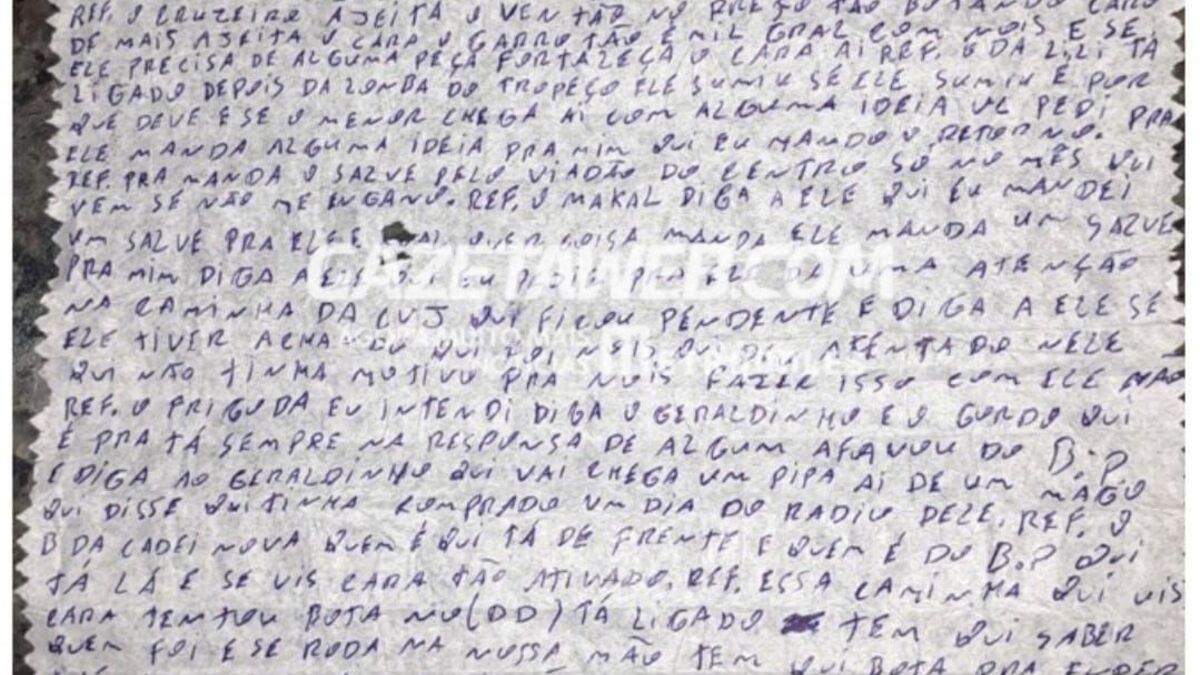 REF. O CRUZEIRO AJEITA O VENTÃO NO PREÇO TÃO BOTANDO CARO
DE MAIS AJEITA O CARA O GARROTÃO É MIL GRAL COM NOIS E SE
ELE PRECISA DE ALGUMA PEÇA FORTALEÇA O CARA AI REF. O DA LILI TÁ
LIGADO DEPOIS DA ZOMBA DO TROPEÇO ELE SUMIU SE ELE SUMIU É POR
QUE DEVE E SE O MENOR CHEGA AI COM ALGUMA IDEIA UC PEDI PRA
ELE MANDA ALGUMA IDEIA PRA MIM QUI EU MANDO O RETORNO.
REF. PRA MANDA O SALVE PELO VIADÃO DO CENTRO SÓ NO MÊS QUI
VEM SE NÃO ME ENGANO. REF. O MAKAL DIGA A ELE QUI EU MANDEI
UM SALVE PRA ELE E QUER COISA MANDA ELE MANDA UM SALVE
PRA MIM DIGA A ELE QUI EU PEDIR PRA ELE DA UMA ATENÇÃO
NA CAMINHA DA CUJ QUI FICOU PENDENTE E DIGA A ELE SE
ELE TIVER ACHA QUI FOI NOIS QUI DEU ATENTADO NELE
QUI NÃO TINHA MOTIVO PRA NOIS FAZER ISSO COM ELE NÃO
REF. O PRIGUDA EU INTENDI DIGA O GERALDINHO E O GORDO QUI
É PRA TÁ SEMPRE NA RESPONSA DE ALGUM AFAVOU DO B.P.
E DIGA AO GERALDINHO QUI VAI CHEGA UM PIPA AI DE UM MAGO
QUI DISSE QUI TINHA COMPRADO UM DIA DO RADIO DELE. REF. O
B DA CADEI NOVA QUEM É QUI TÁ DE FRENTE E QUEM É DO B.P QUI
TÁ LÁ E SE VIS CARA TÃO ATIVADO. REF. ESSA CAMINHA QUI VIS
CARA TENTOU BOTA NO (DD) TÁ LIGADO TEM QUI SABER
QUEM FOI E SE RODA NA NOSSA MÃO TEM QUI BOTA PRA
GAZETAWEB.COM